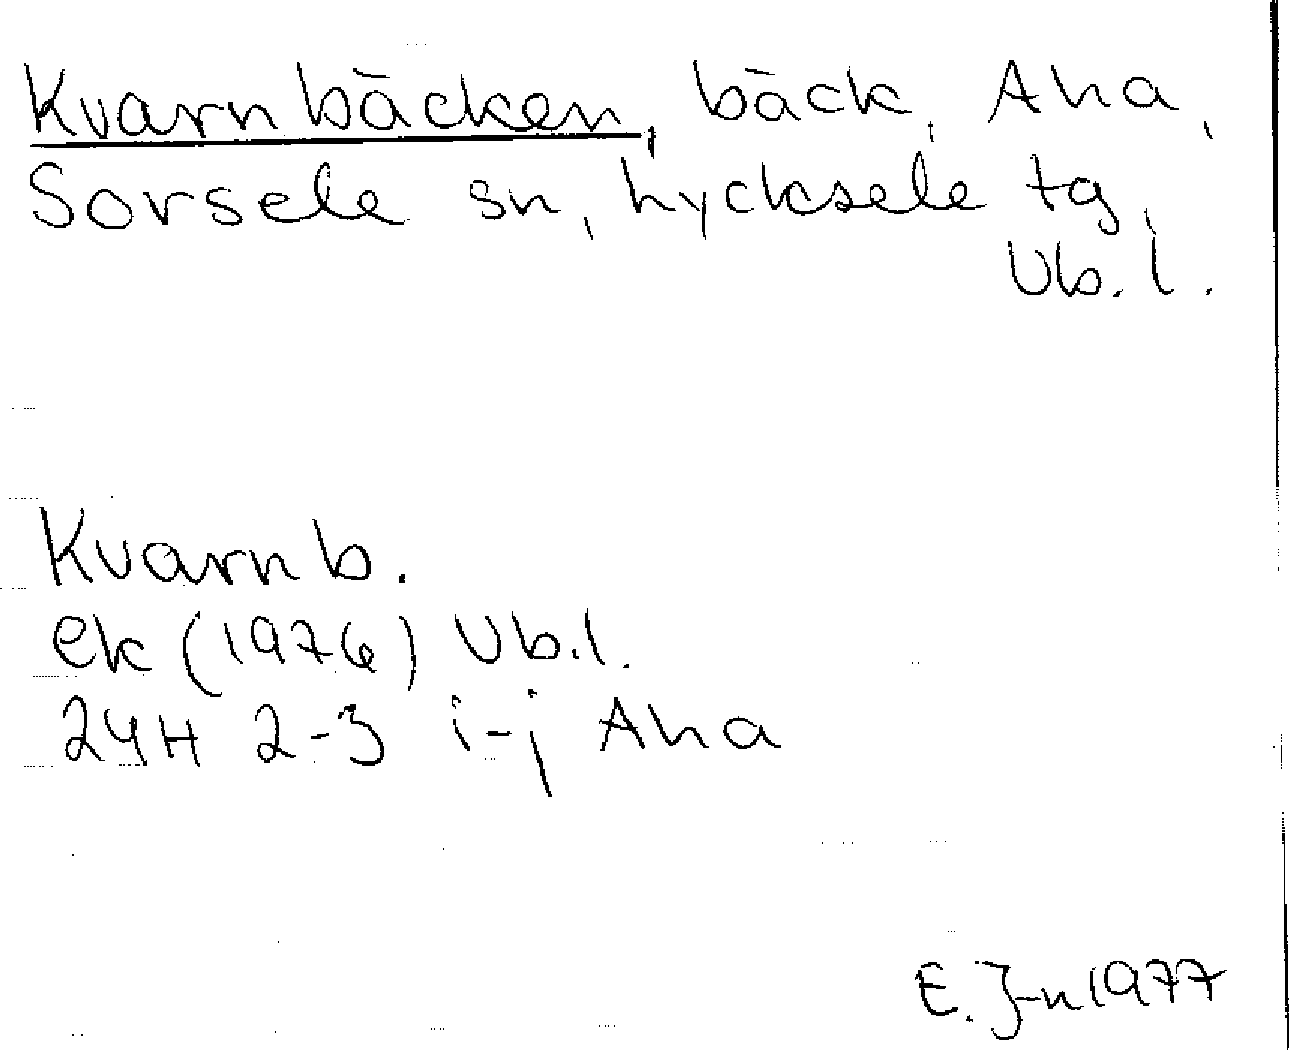 Kvarnbäcken, bäck, Aha,
Sorsele sn, Lycksele tg,
Vb. l.
Kvarnb.
ek (1976) Vb.l.
24H 2-3 i-j Aha
E. J-n 1977